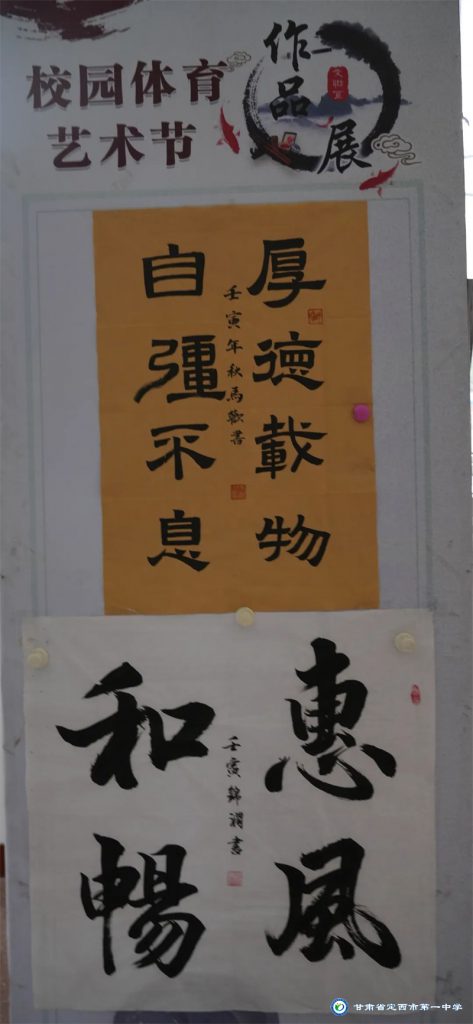 校园体育
艺术节
作品
展
厚德載物
自彊不息
壬寅年秋馬歡書
惠風
和暢
壬寅錦瀾書
甘肃省定西市第一中学